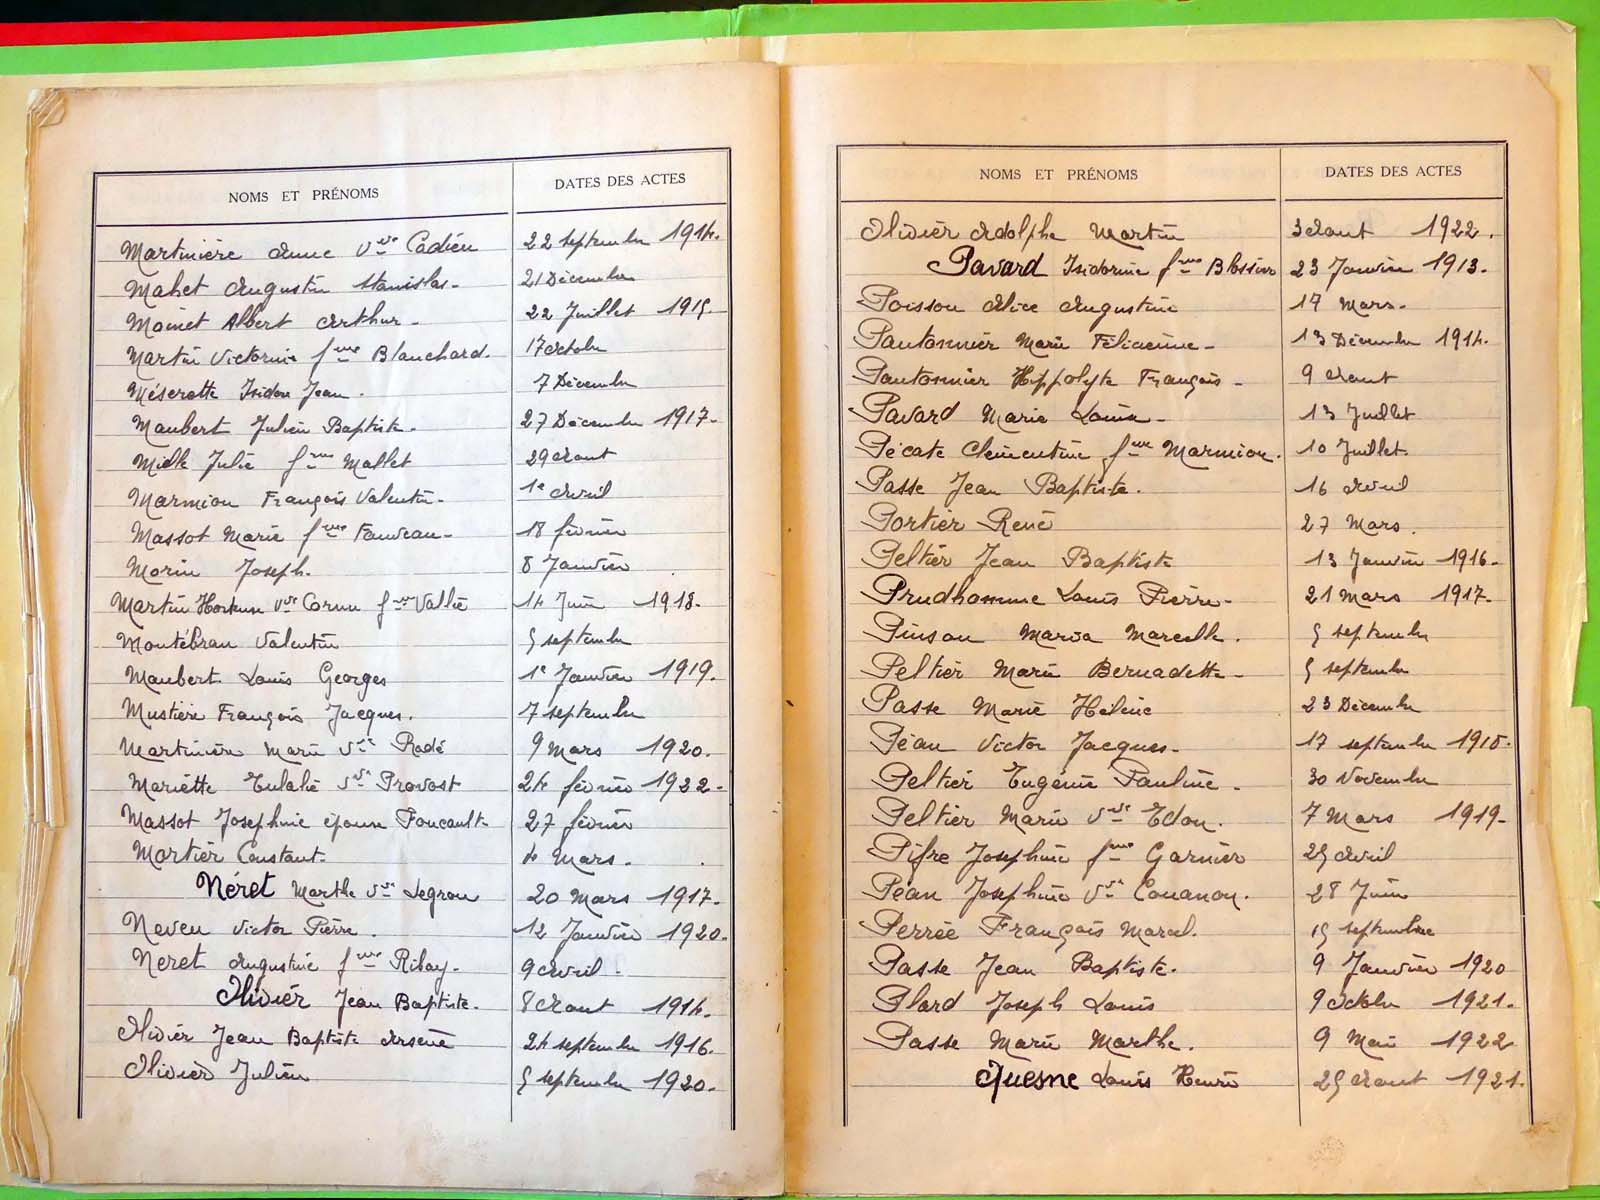 NOMS ET PRÉNOMS DATES DES ACTES
Martinière Anne Vve Cadieu 22 septembre 1914.
Mahet Augustin Stanislas. 21 Décembre
Moinet Albert Arthur. 22 Juillet 1915.
Martin Victorine fme Blanchard. 17 octobre
Méserette Isidore Jean. 7 Décembre
Maubert Julien Baptiste. 27 Décembre 1917.
Julie fme Mallet 29 Aout
Marmion François Valentin. 1e Avril
Massot Marie fme Fauveau. 18 février
Morin Joseph. 8 Janvier
Martin Hortense vve Cornu fme Vallié 14 Juin 1918.
Montébran Valentin 5 septembre
Maubert Louis Georges 1e Janvier 1919.
Mustière François Jacques. 7 septembre
Martinière Marie Vve Radé 9 Mars 1920.
Mariette Eulalie Vve Provost 24 février 1922.
Massot Josephine épouse Foucault 27 février
Mortier Constant. 4 Mars.
Néret Marthe Vve Legrou 20 Mars 1917.
Neveu Victor Pierre. 12 Janvier 1920.
Neret Augustine fme Ribay. 9 Avril.
Olivier Jean Baptiste. 8 Aout 1914.
Olivier Jean Baptiste Arsène 24 septembre 1916.
Olivier Julien 5 septembre 1920.
NOMS ET PRÉNOMS DATES DES ACTES
Olivier Adolphe Martin 3 Aout 1922.
Pavard Isidorine fme Blossier 23 Janvier 1913.
Poisson Alice Augustine 17 Mars.
Pautonnier Marie Félicienne. 13 Décembre 1914.
Pautonnier Hippolyte François. 9 Aout
Pavard Marie Louise. 13 Juillet
Pécate Clémentine fme Marmion. 10 Juillet.
Passe Jean Baptiste. 16 Avril
Portier René 27 Mars.
Peltier Jean Baptiste 13 Janvier 1916.
Prudhomme Louis Pierre. 21 Mars 1917.
Pinson Maria Marcelle. 5 septembre
Peltier Marie Bernadette. 5 septembre
Passe Marie Hélène 23 Décembre
Péan Victor Jacques. 17 septembre 1918.
Peltier Eugénie Pauline. 30 Novembre
Peltier Marie Vve Edon. 7 Mars 1919.
Pifre Joséphine fme Garnier 25 Avril
Péan Joséphine Vve Couanon. 28 Juin
Perrée François Marcel. 15 septembre
Passe Jean Baptiste. 9 Janvier 1920
Plard Joseph Louis 9 octobre 1921.
Passe Marie Marthe. 9 Mai 1922
Quesne Louis Henri 25 Aout 1921.